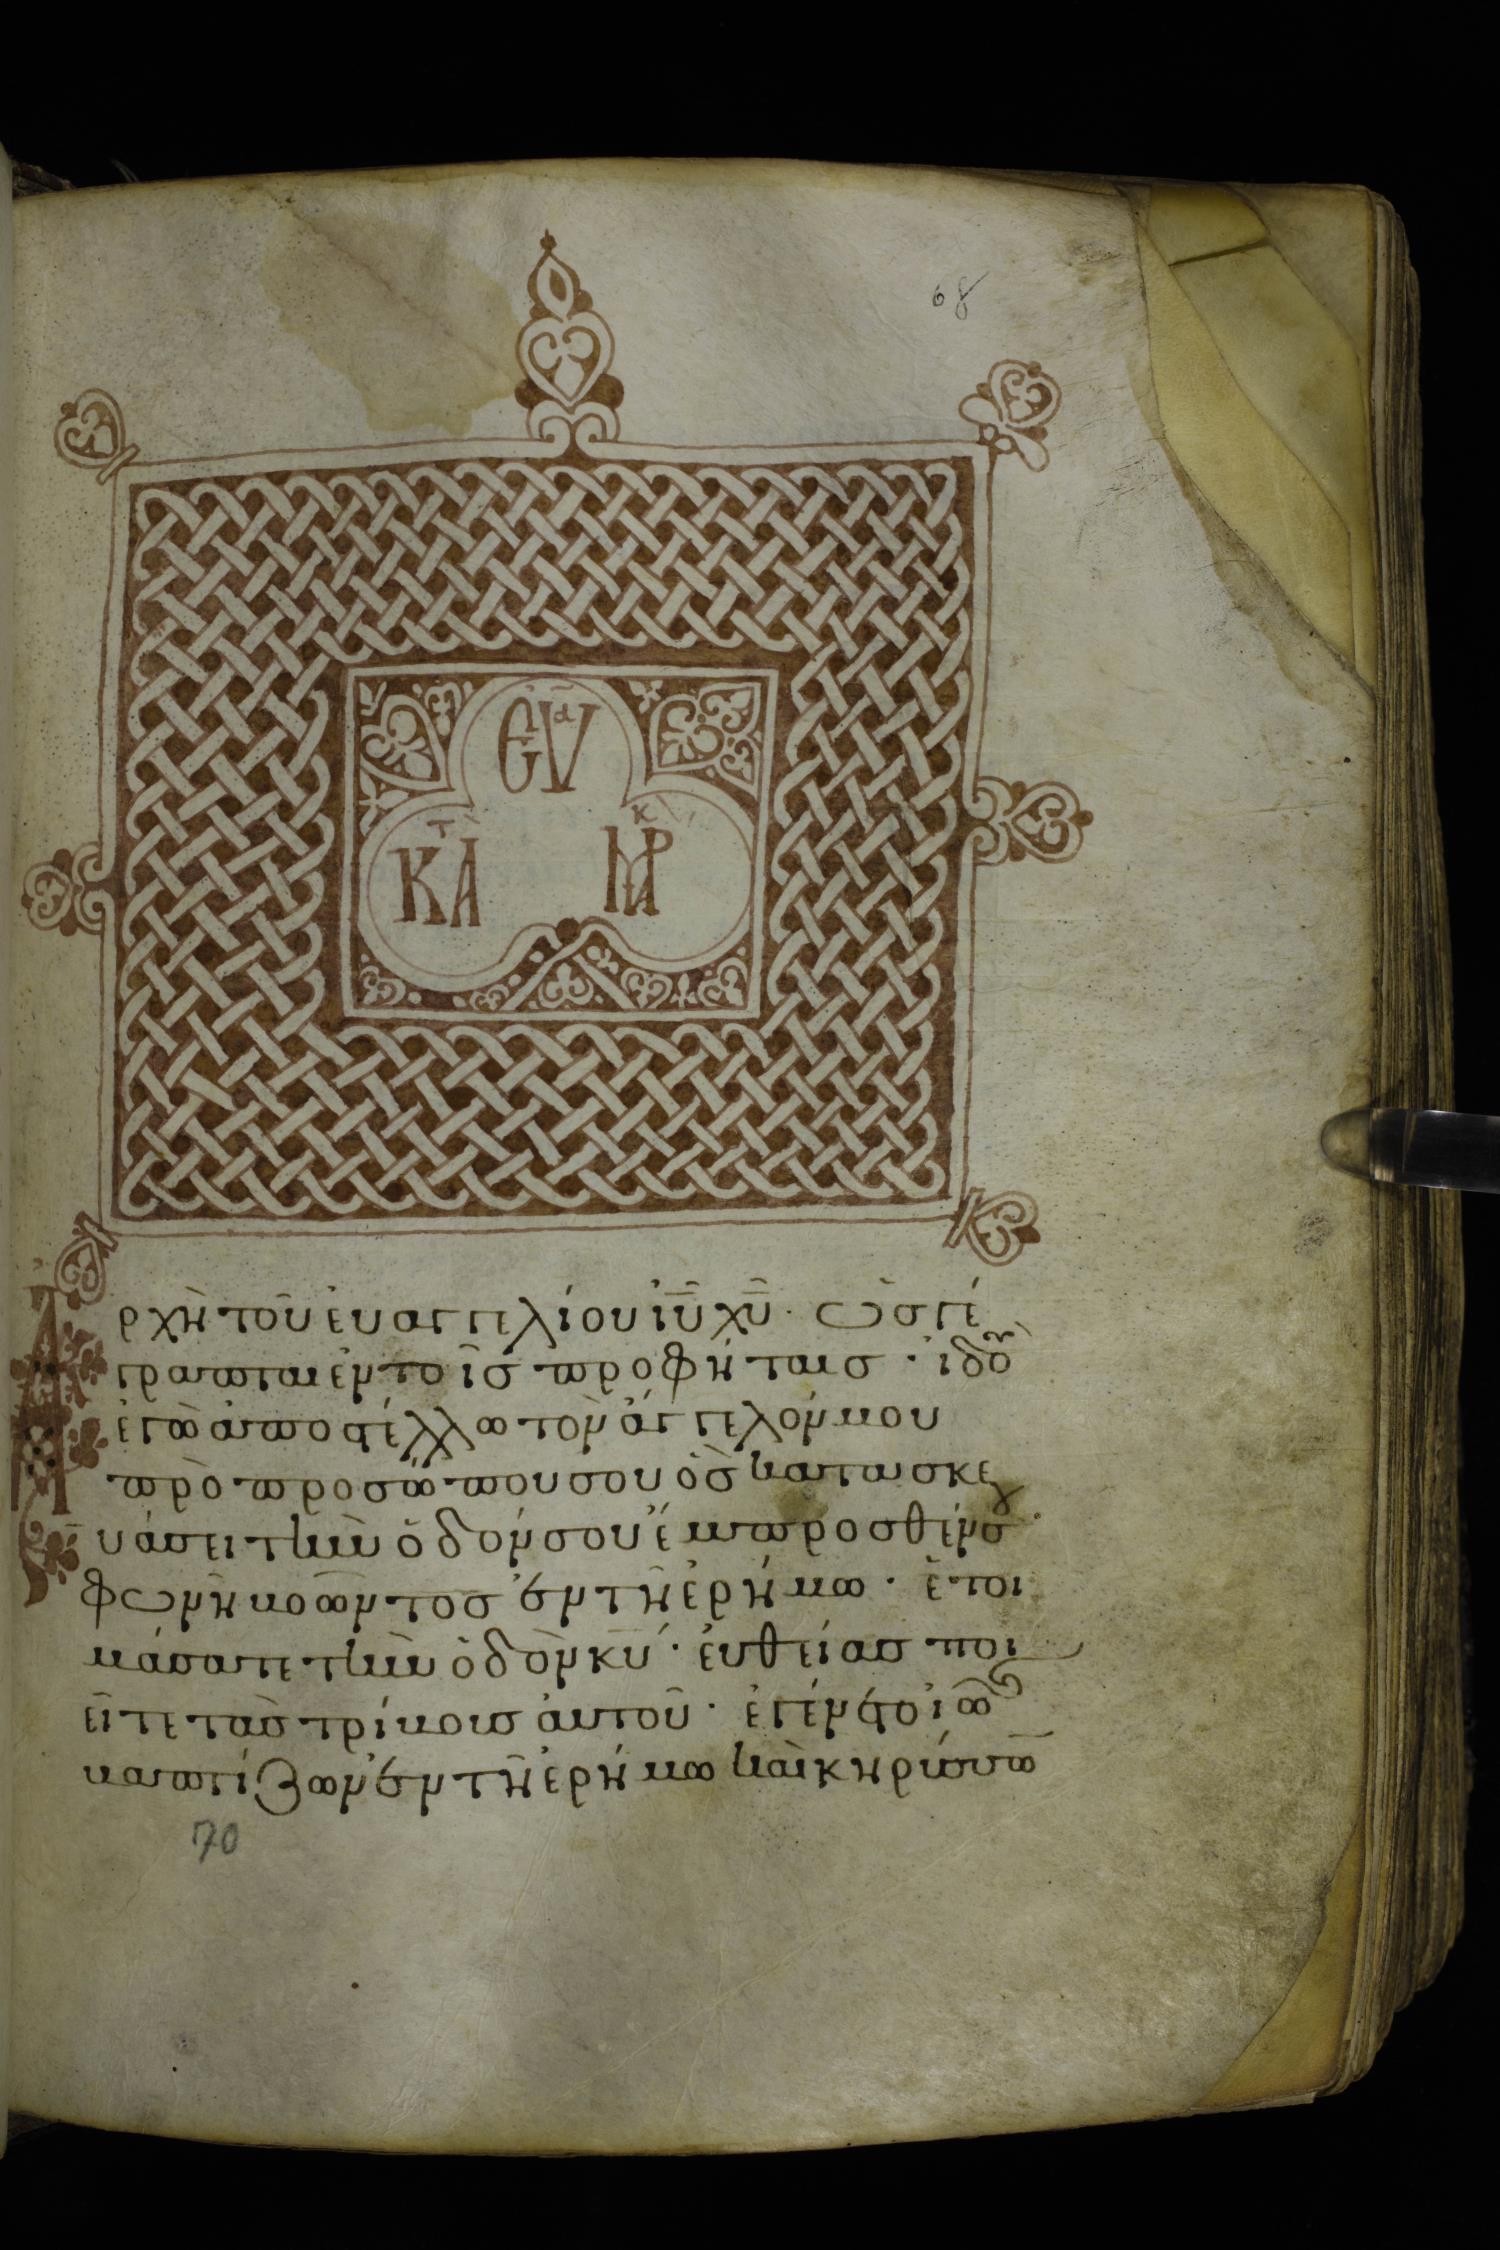 68
ΕΥα
ΚΑτ ΜΑΡκ
Ἀρχὴ τοῦ ἐυαγγελίου ἰῦ χῦ· ὡς γέ
γραπται ἐν τοῖς προφήταις· ἰδοὺ
ἐγὼ ἀποστέλλω τὸν ἄγγελόν μου
πρὸ προσώπου σου ὃς κατασκε
υάσει τὴν ὁδόν σου ἔμπροσθέν σου·
φωνὴ βοῶντος ἐν τῆ ἐρήμω· ἑτοι
μάσατε τὴν ὁδὸν κῦ· ἐυθείας ποι
εῖτε τὰς τρίβους ἀυτοῦ· ἐγένετο ἰω
βαπτίζων ἐν τῆ ἐρήμω καὶ κηρύσσων
70